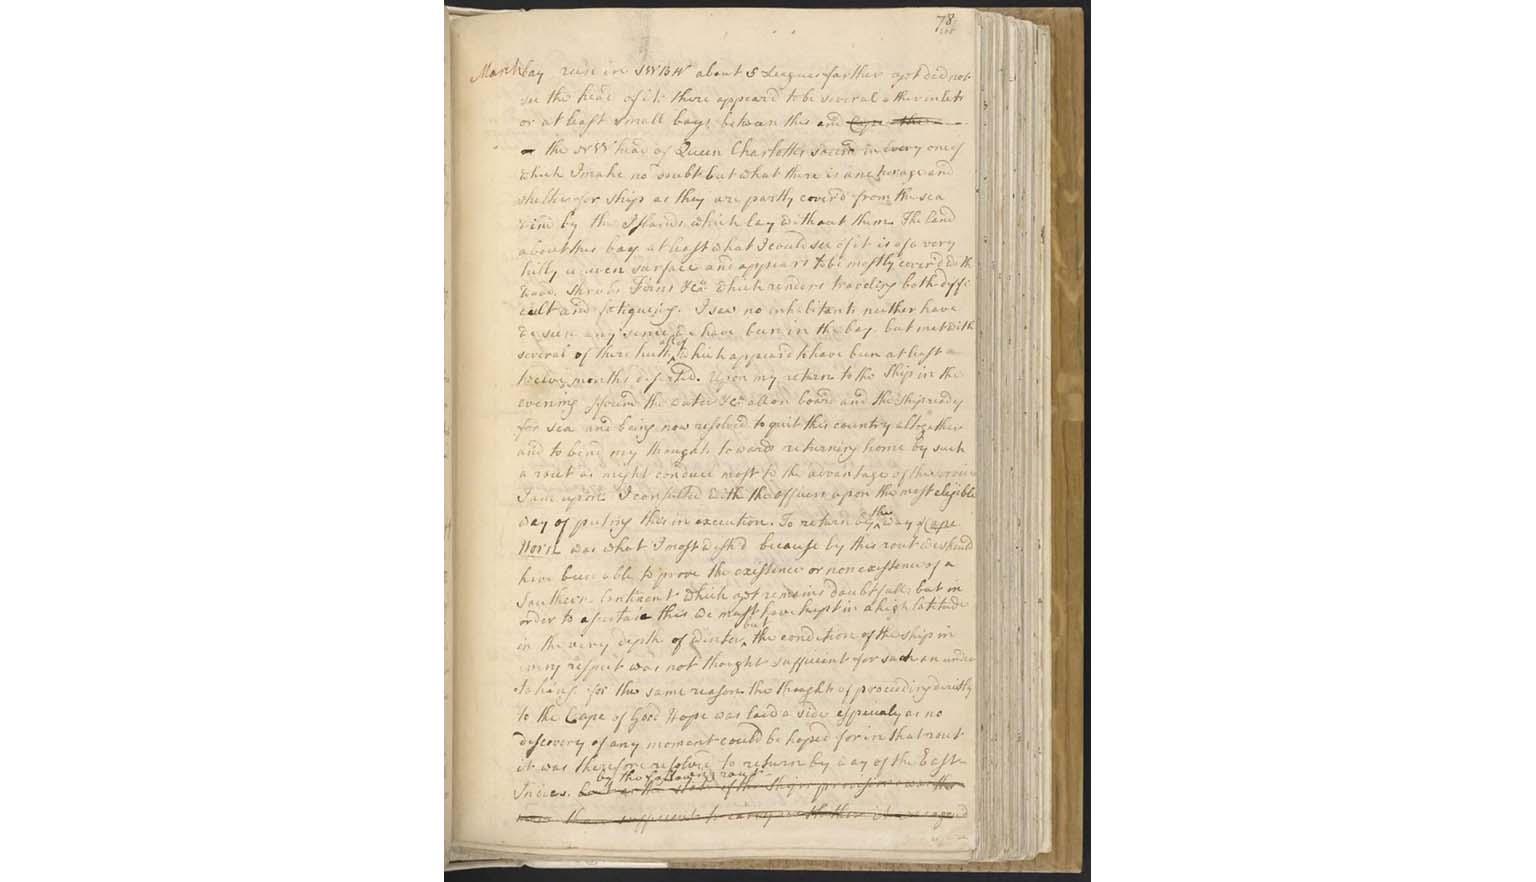 78
March bay run in SWBW about 5 Leagues farther yet did not
see the head of it there appear'd to be several other inlets
or at least small bays between this and Cape
the NW head of Queen Charlottes sound in every one of
which I make no doubt but what there is anchorage and
shelter for ships as they are partly cover'd from the sea
wind by the Islands which lay without them. The land
about this bay at least what I could see of it is of a very
hilly uneven surface and appears to be mostly cover'd with
wood, shrubs Firns &ca which renders traveling both diffi
cult and fatiguing. I saw no inhabitants neither have
we seen any sence we have been in the bay but met with
several of there hutts all of which appear'd to have been at least a
twelve months deserted. Upon my return to the Ship in the
evening I found the water &ca all on board and the ship ready
for sea and being now resolved to quit this country altogether
and to bend my thoughts towards returning home by such
a rout as might conduce most to the advantage of the service
I am upon. I consulted with the officers upon the most eligible
way of puting this in execution. To return by the way of Cape
Horn was what I most wish'd because by this rout we should
have been able to prove the existence or non existence of a
Southern Continent which yet remains doubtfull; but in
order to ascertain this we must have kept in a high latitude
in the very depth of winter but the condition of the ship in
every respect was not thought sufficient for such an under
taking. for the same reason the thoughts of proceeding directly
to the Cape of Good Hope was laid a side especialy as no
discovery of any moment could be hoped for in that rout
it was therefore resolved to return by way of the East
Indies. by the following rout but as the state of the Ships provisions was
more than sufficient to carry